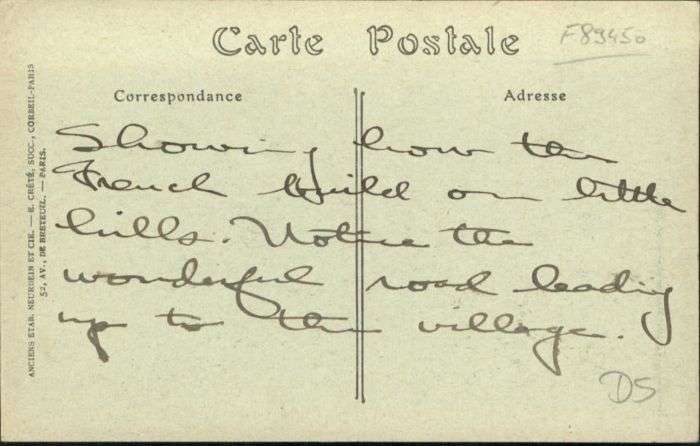 Carte Postale
F89450
Correspondance
Adresse
Showing how the
French build on little
hills. Notice the
wonderful road leading
up to the village.
DS
ANCIENS ETAB. NEURDEIN ET CIE. — E. CRÉTÉ, SUCC., CORBEIL-PARIS
52, AV., DE BRETEUIL. — PARIS.